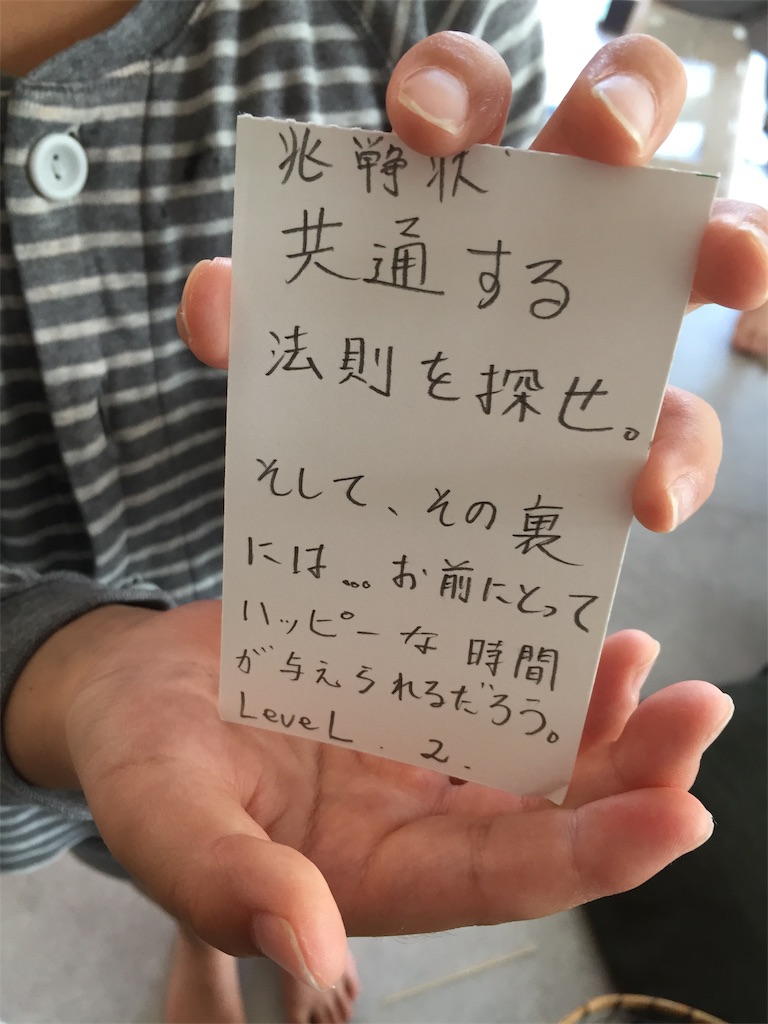 兆戦状
共通する
法則を探せ。
そして、その裏
には…お前にとって
ハッピーな時間
が与えられるだろう。
LeveL. 2.